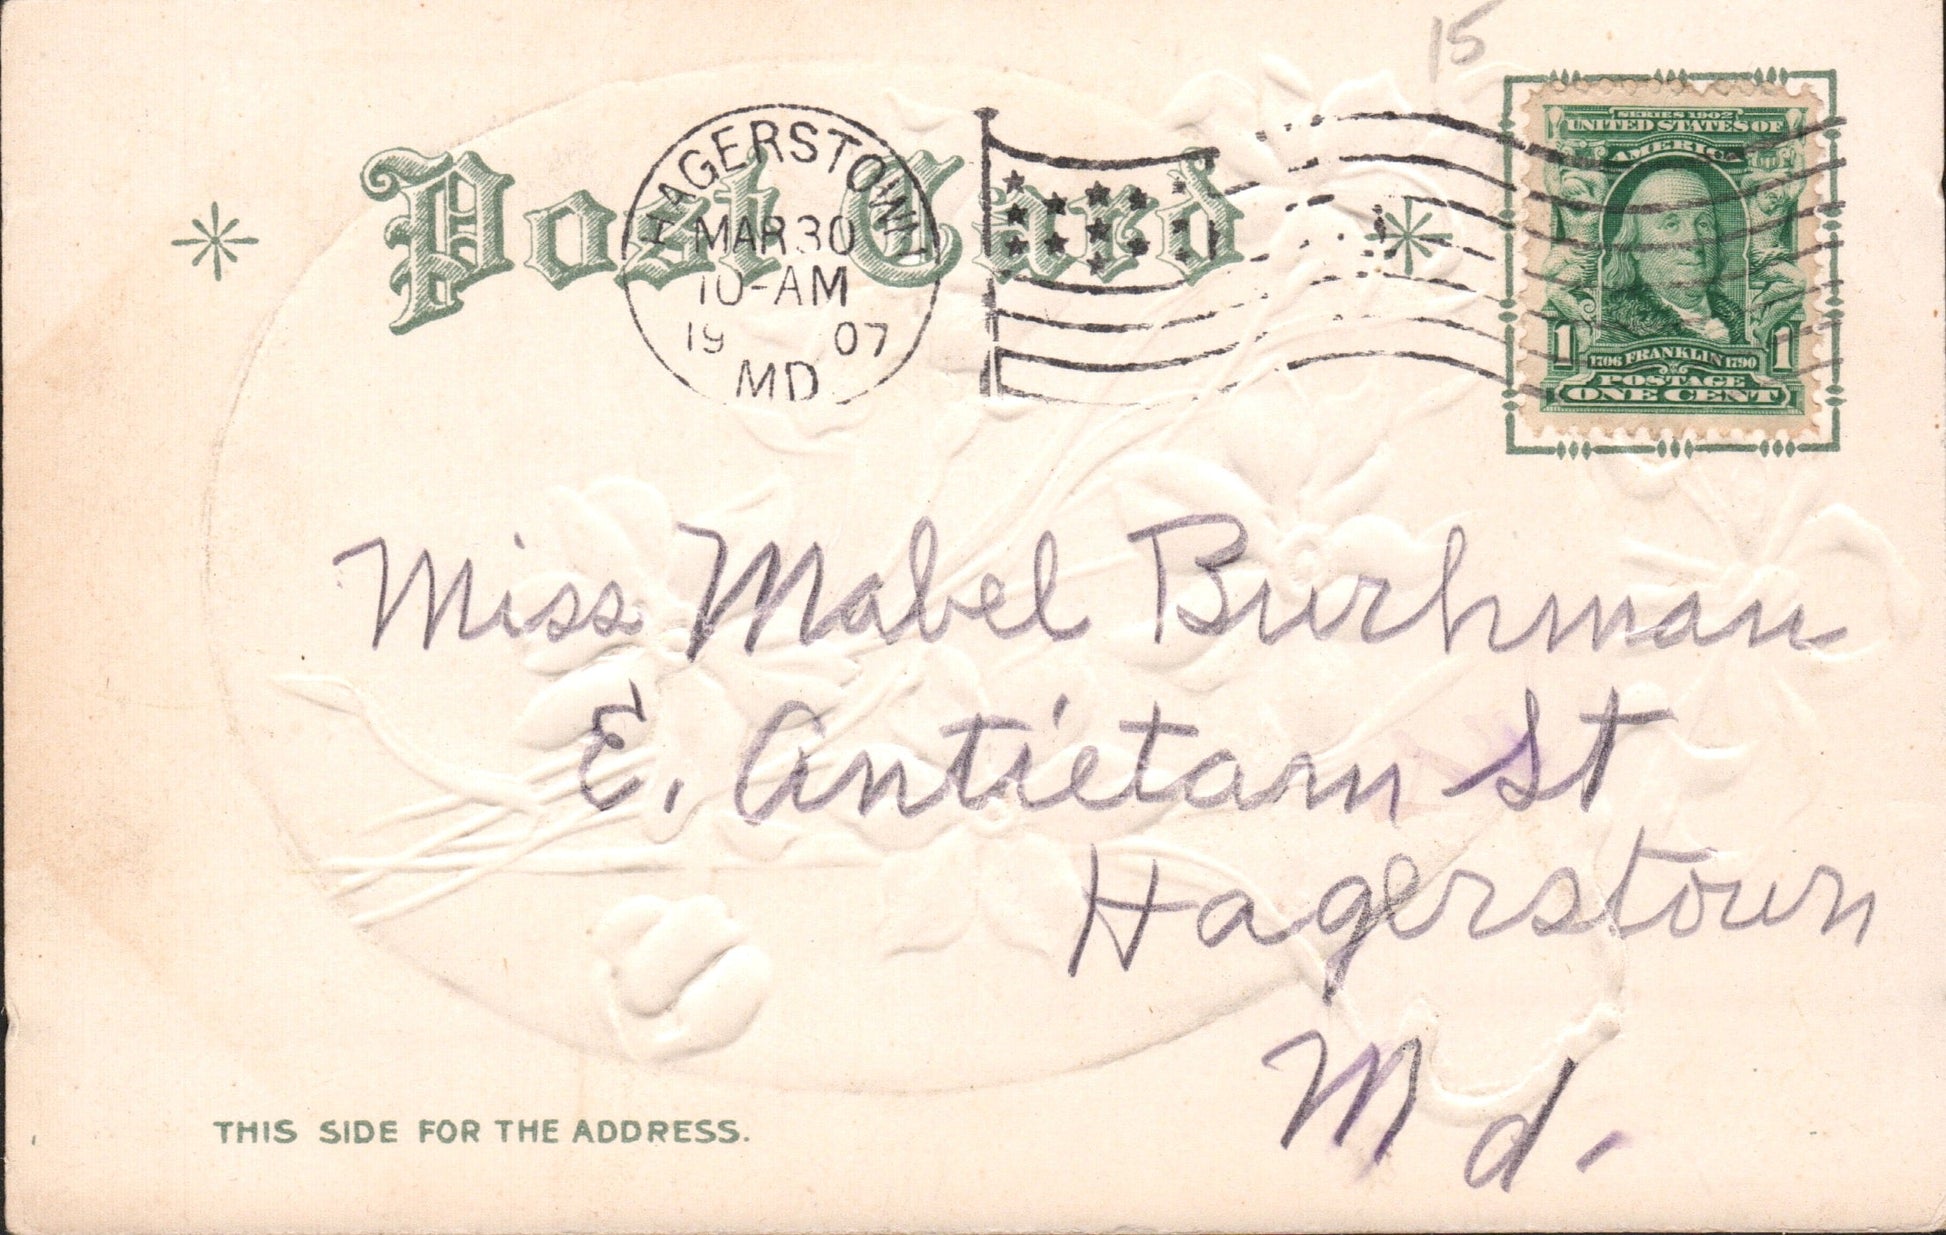 15
Post Card
HAGERSTOWN
MAR 30
10-AM
1907
MD
SERIES 1902
UNITED STATES OF
AMERICA
1 1
1706 FRANKLIN 1790
POSTAGE
ONE CENT
Miss Mabel Burhman
E. Antietam St
Hagerstown
Md.
THIS SIDE FOR THE ADDRESS.